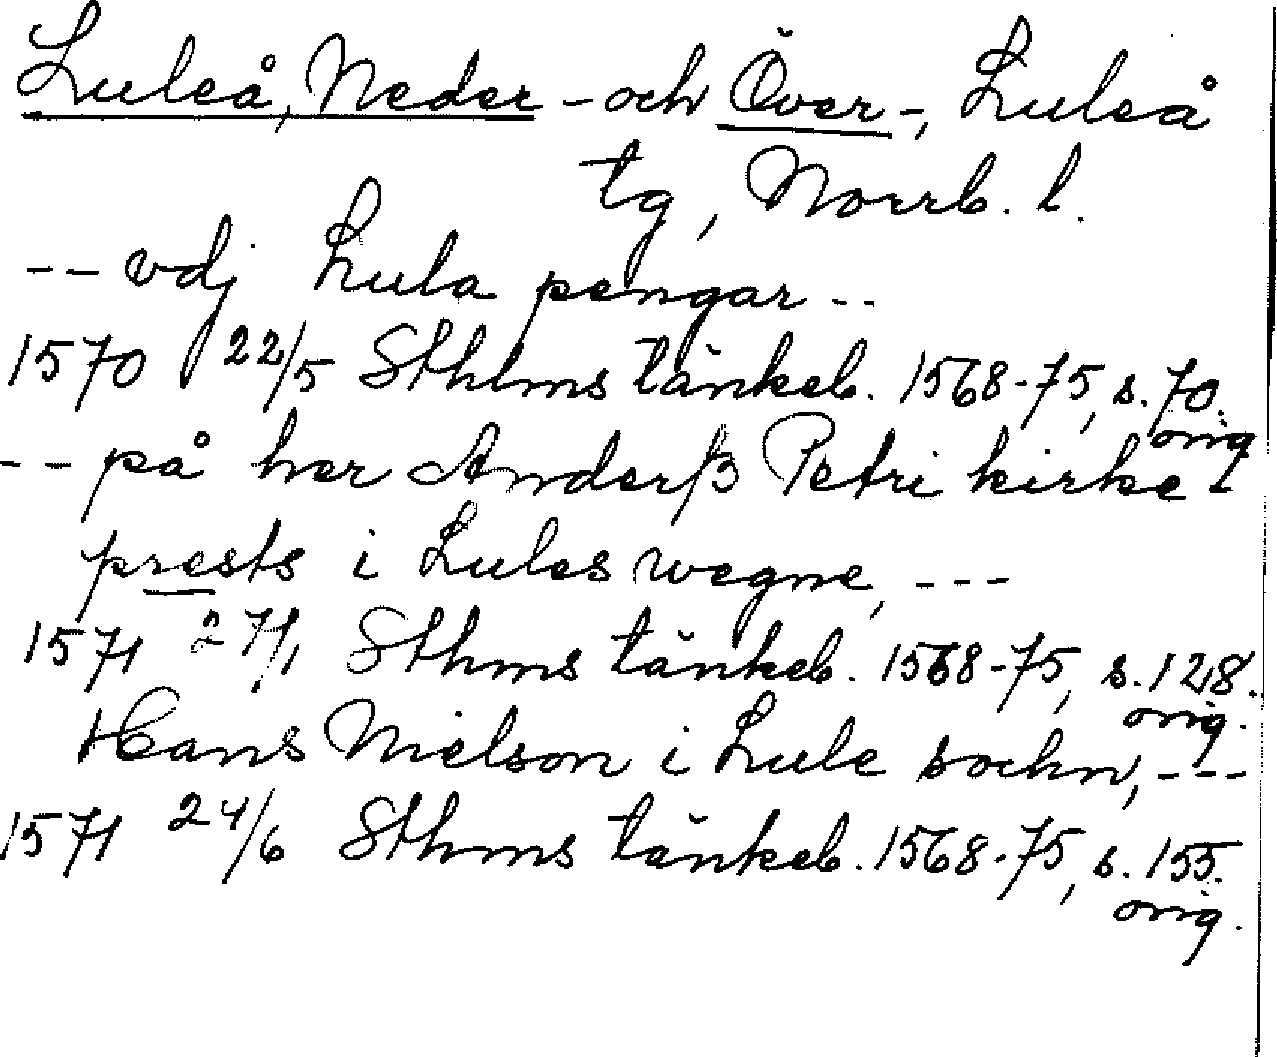 Luleå, Neder - och Över -, Luleå
tg, Norrb. l.
-- vdj Lula pengar --
1570 22/5 Sthlms tänkeb. 1568-75, s. 70.
orig
-- på her Anderß Petri kirke-
prests i Lules wegne, ---
1571 27/1 Sthms tänkeb. 1568-75, s. 128.
orig.
Hans Nielson i Lule sochn, ---
1571 24/6 Sthms tänkeb. 1568-75, s. 155.
orig.